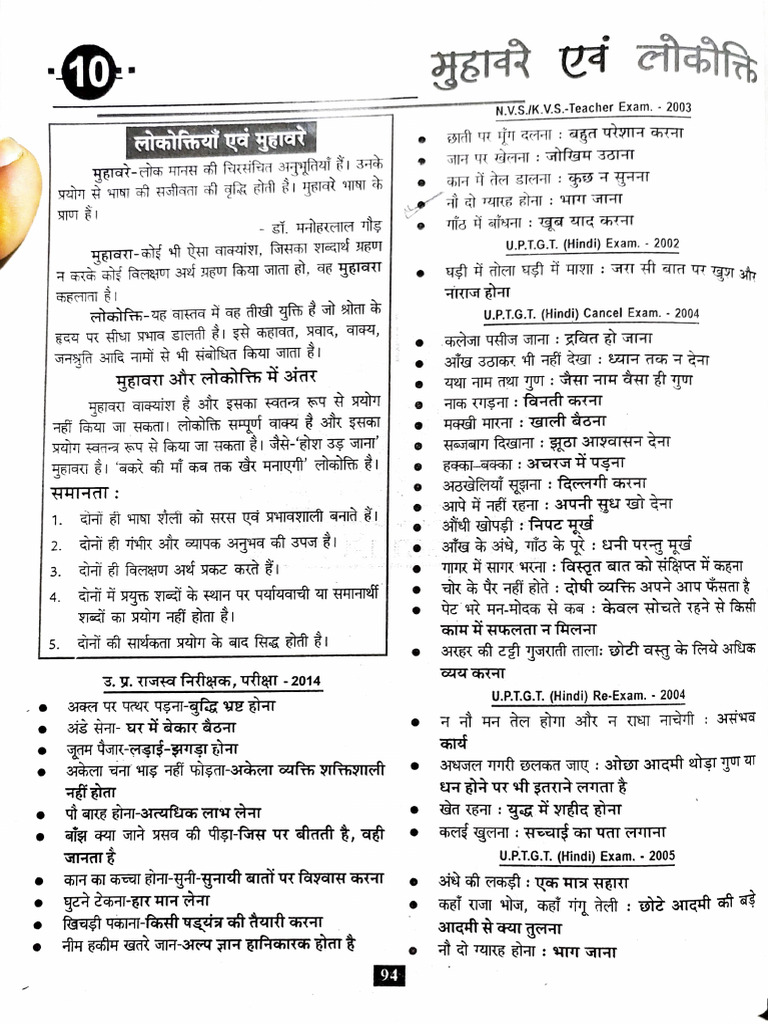 10
मुहावरे एवं लोकोक्ति
लोकोक्तियाँ एवं मुहावरे
मुहावरे-लोक मानस की चिरसंचित अनुभूतियाँ हैं। उनके
प्रयोग से भाषा की सजीवता की वृद्धि होती है। मुहावरे भाषा के
प्राण हैं।
- डॉ. मनोहरलाल गौड़
मुहावरा-कोई भी ऐसा वाक्यांश, जिसका शब्दार्थ ग्रहण
न करके कोई विलक्षण अर्थ ग्रहण किया जाता हो, वह मुहावरा
कहलाता है।
लोकोक्ति-यह वास्तव में वह तीखी युक्ति है जो श्रोता के
हृदय पर सीधा प्रभाव डालती है। इसे कहावत, प्रवाद, वाक्य,
जनश्रुति आदि नामों से भी संबोधित किया जाता है।
मुहावरा और लोकोक्ति में अंतर
मुहावरा वाक्यांश है और इसका स्वतन्त्र रूप से प्रयोग
नहीं किया जा सकता। लोकोक्ति सम्पूर्ण वाक्य है और इसका
प्रयोग स्वतन्त्र रूप से किया जा सकता है। जैसे-'होश उड़ जाना'
मुहावरा है। 'बकरे की माँ कब तक खैर मनाएगी' लोकोक्ति है।
समानता :
1. दोनों ही भाषा शैली को सरस एवं प्रभावशाली बनाते हैं।
2. दोनों ही गंभीर और व्यापक अनुभव की उपज है।
3. दोनों ही विलक्षण अर्थ प्रकट करते हैं।
4. दोनों में प्रयुक्त शब्दों के स्थान पर पर्यायवाची या समानार्थी
शब्दों का प्रयोग नहीं होता है।
5. दोनों की सार्थकता प्रयोग के बाद सिद्ध होती है।
उ. प्र. राजस्व निरीक्षक, परीक्षा - 2014
● अक्ल पर पत्थर पड़ना-बुद्धि भ्रष्ट होना
● अंडे सेना- घर में बेकार बैठना
● जूतम पैजार-लड़ाई-झगड़ा होना
● अकेला चना भाड़ नहीं फोड़ता-अकेला व्यक्ति शक्तिशाली
नहीं होता
● पौ बारह होना-अत्यधिक लाभ लेना
● बाँझ क्या जाने प्रसव की पीड़ा-जिस पर बीतती है, वही
जानता है
● कान का कच्चा होना-सुनी-सुनायी बातों पर विश्वास करना
● घुटने टेकना-हार मान लेना
● खिचड़ी पकाना-किसी षड्यंत्र की तैयारी करना
● नीम हकीम खतरे जान-अल्प ज्ञान हानिकारक होता है
N.V.S./K.V.S.-Teacher Exam. - 2003
● छाती पर मूँग दलना : बहुत परेशान करना
● जान पर खेलना : जोखिम उठाना
● कान में तेल डालना : कुछ न सुनना
● नौ दो ग्यारह होना : भाग जाना
● गाँठ में बाँधना : खूब याद करना
U.P.T.G.T. (Hindi) Exam. - 2002
● घड़ी में तोला घड़ी में माशा : जरा सी बात पर खुश और
नाराज होना
U.P.T.G.T. (Hindi) Cancel Exam. - 2004
● कलेजा पसीज जाना : द्रवित हो जाना
● आँख उठाकर भी नहीं देखा : ध्यान तक न देना
● यथा नाम तथा गुण : जैसा नाम वैसा ही गुण
● नाक रगड़ना : विनती करना
● मक्खी मारना : खाली बैठना
● सब्जबाग दिखाना : झूठा आश्वासन देना
● हक्का-बक्का : अचरज में पड़ना
● अठखेलियाँ सूझना : दिल्लगी करना
● आपे में नहीं रहना : अपनी सुध खो देना
● औंधी खोपड़ी : निपट मूर्ख
● आँख के अंधे, गाँठ के पूरे : धनी परन्तु मूर्ख
● गागर में सागर भरना : विस्तृत बात को संक्षिप्त में कहना
● चोर के पैर नहीं होते : दोषी व्यक्ति अपने आप फँसता है
● पेट भरे मन-मोदक से कब : केवल सोचते रहने से किसी
काम में सफलता न मिलना
● अरहर की टट्टी गुजराती ताला: छोटी वस्तु के लिये अधिक
व्यय करना
U.P.T.G.T. (Hindi) Re-Exam. - 2004
● न नौ मन तेल होगा और न राधा नाचेगी : असंभव
कार्य
● अधजल गगरी छलकत जाए : ओछा आदमी थोड़ा गुण या
धन होने पर भी इतराने लगता है
● खेत रहना : युद्ध में शहीद होना
● कलई खुलना : सच्चाई का पता लगाना
U.P.T.G.T. (Hindi) Exam. - 2005
● अंधे की लकड़ी : एक मात्र सहारा
● कहाँ राजा भोज, कहाँ गंगू तेली : छोटे आदमी की बड़े
आदमी से क्या तुलना
● नौ दो ग्यारह होना : भाग जाना
94